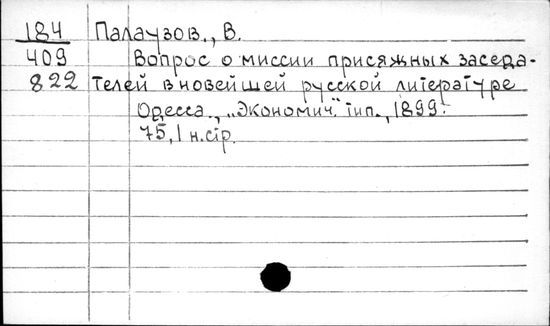 184 Палаузов., В.
409 Вопрос о миссии присяжных заседа-
822 телей в новейшей русской литературе
Одесса., „Экономич." тип., 1899.
75, 1 н.стр.